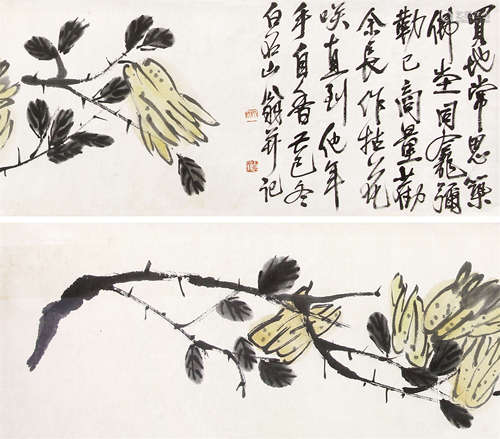 買地常思築
佛堂同龕彌
勒已商量勸
余長作拈花
咲直到他年
手自香 巳冬
白石山翁并記